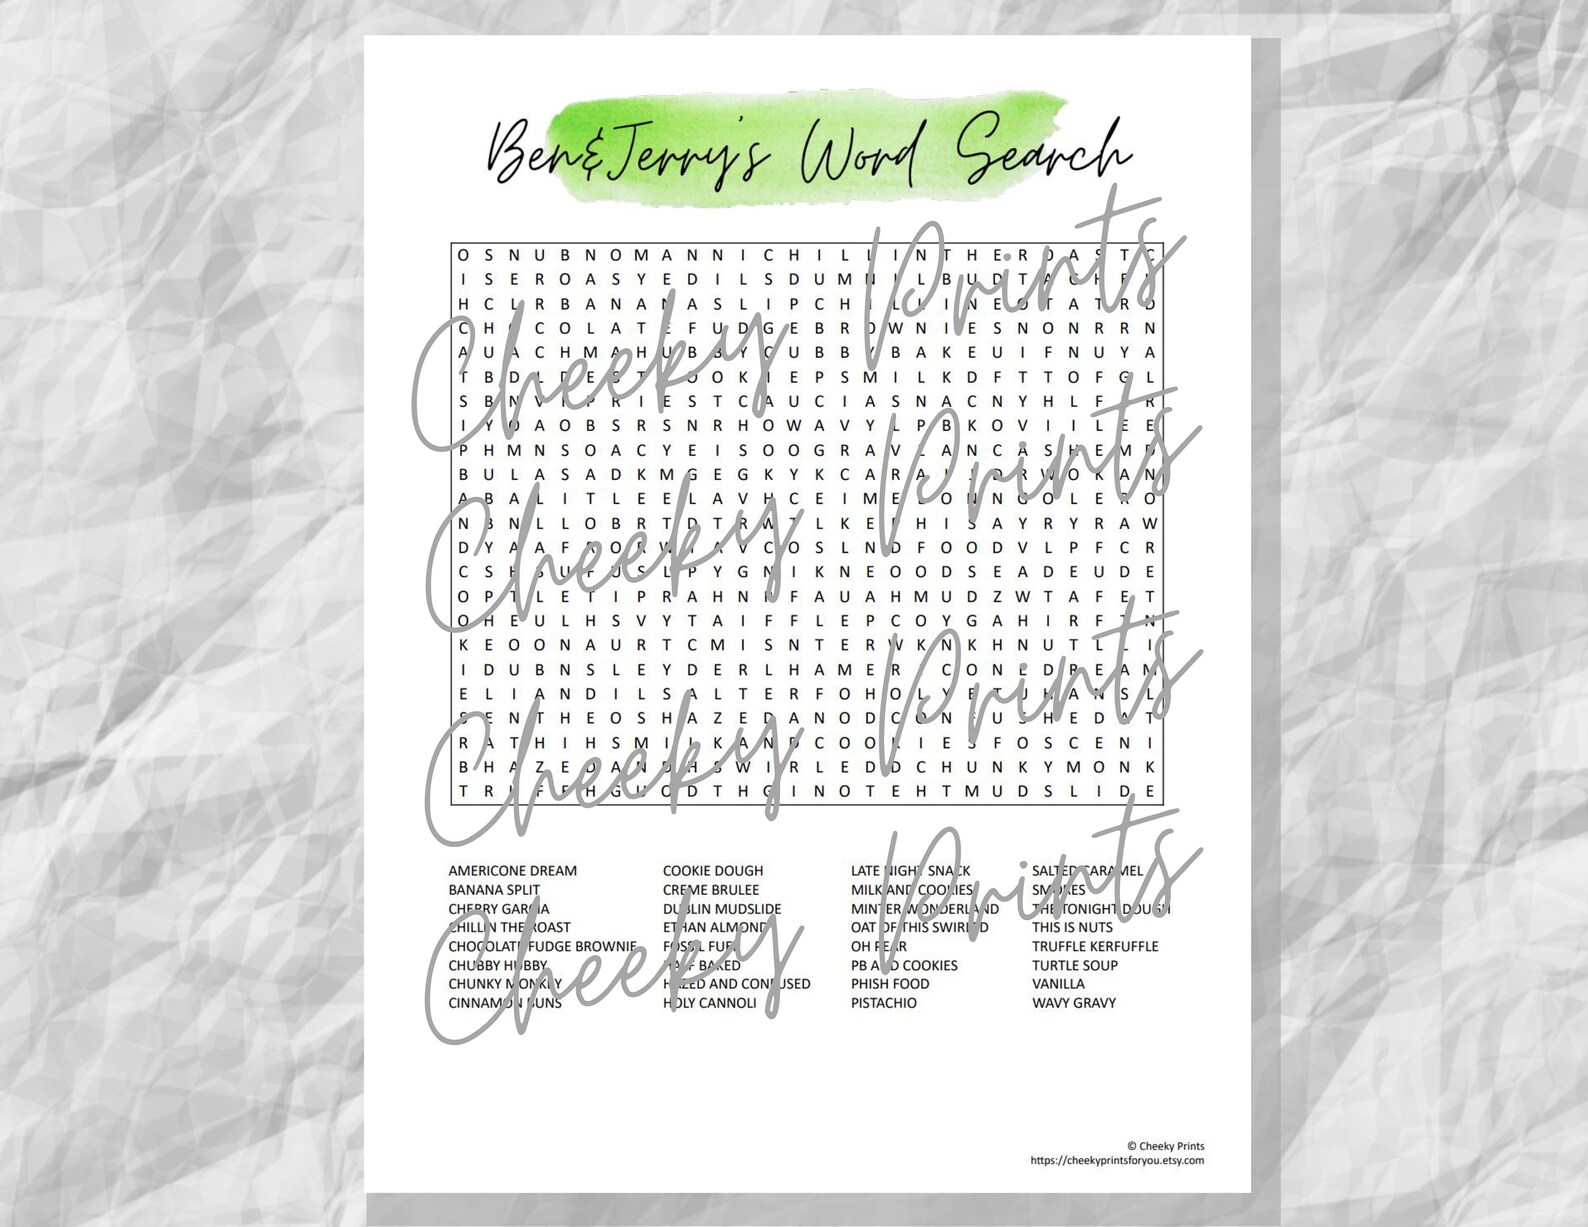 Ben&Jerry's Word Search
O S N U B N O M A N N I C H I L L I N T H E R O A S T C
I S E R O A S Y E D I L S D U M N I L B U D T A C H E
H C L R B A N A N A S L I P C H I L L I N E O T A T R D
C H O C O L A T E F U D G E B R O W N I E S N O N R R N
A U A C H M A H U B B Y C U B B Y B A K E U I F N U Y A
T B D L D E S T O O K I E P S M I L K D F T T O F G L
S B N V I P R I E S T C A U C I A S N A C N Y H L F R
I Y O A O B S R S N R H O W A V Y L P B K O V I I L E E
P H M N S O A C Y E I S O O G R A V L A N C A S H E M D
B U L A S A D K M G E G K Y K C A R A L S D R W O K A N
A B A L I T L E E L A V H C E I M E L O N N G O L E R O
N B N L L O B R T D T R W T L K E P H I S A Y R Y R A W
D Y A A F R O R W I A V C O S L N D F O O D V L P F C R
C S H S U F U S L P Y G N I K N E O O D S E A D E U D E
O P T L E T I P R A H N R F A U A H M U D Z W T A F E T
O H E U L H S V Y T A I F F L E P C O Y G A H I R F N
K E O O N A U R T C M I S N T E R W K N K H N U T L L I
I D U B N S L E Y D E R L H A M E R I C O N E D R E A M
E L I A N D I L S A L T E R F O H O L Y E T U H A N S L
S E N T H E O S H A Z E D A N O D C O N F U S H E D A T
R A T H I H S M I L K A N D C O O K I E S F O S C E N I
B H A Z E D A N D H S W I R L E D D C H U N K Y M O N K
T R U F F H G U O D T H G I N O T E H T M U D S L I D E
AMERICONE DREAM
BANANA SPLIT
CHERRY GARCIA
CHILLIN THE ROAST
CHOCOLATE FUDGE BROWNIE
CHUBBY HUBBY
CHUNKY MONKEY
CINNAMON BUNS
COOKIE DOUGH
CREME BRULEE
DUBLIN MUDSLIDE
ETHAN ALMOND
FOSSIL FUEL
HALF BAKED
HAZED AND CONFUSED
HOLY CANNOLI
LATE NIGHT SNACK
MILK AND COOKIES
MINTER WONDERLAND
OAT OF THIS SWIRLED
OH FEAR
PB AND COOKIES
PHISH FOOD
PISTACHIO
SALTED CARAMEL
SMORES
THE TONIGHT DOUGH
THIS IS NUTS
TRUFFLE KERFUFFLE
TURTLE SOUP
VANILLA
WAVY GRAVY
Cheeky Prints
Cheeky Prints
Cheeky Prints
Cheeky Prints
© Cheeky Prints
https://cheekyprintsforyou.etsy.com